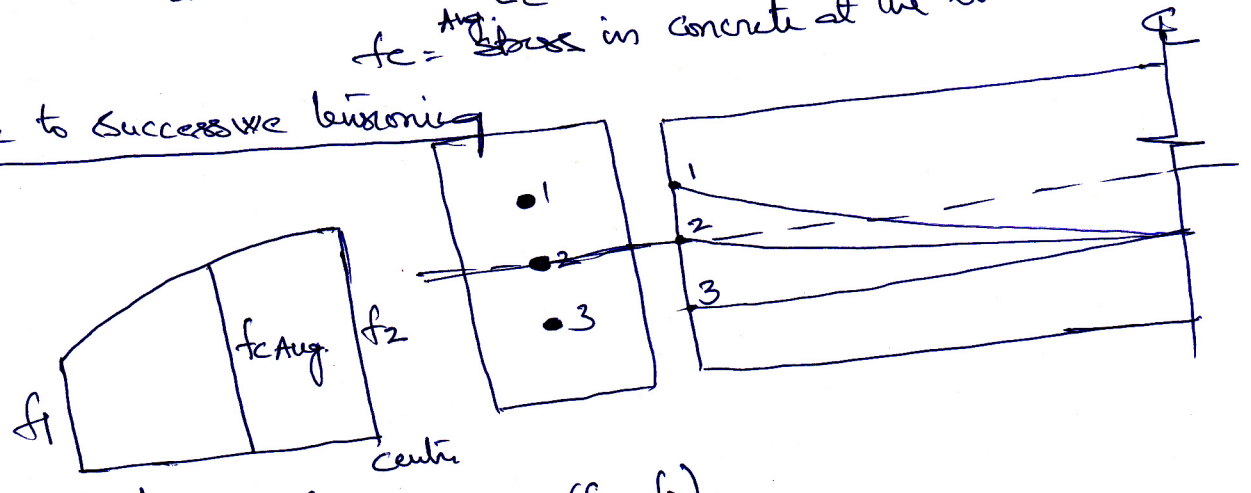 fc = Avg. stress in concrete at the
to successive tensioning
℄
1
2
3
1
2
3
fc Avg.
f2
f1
centre